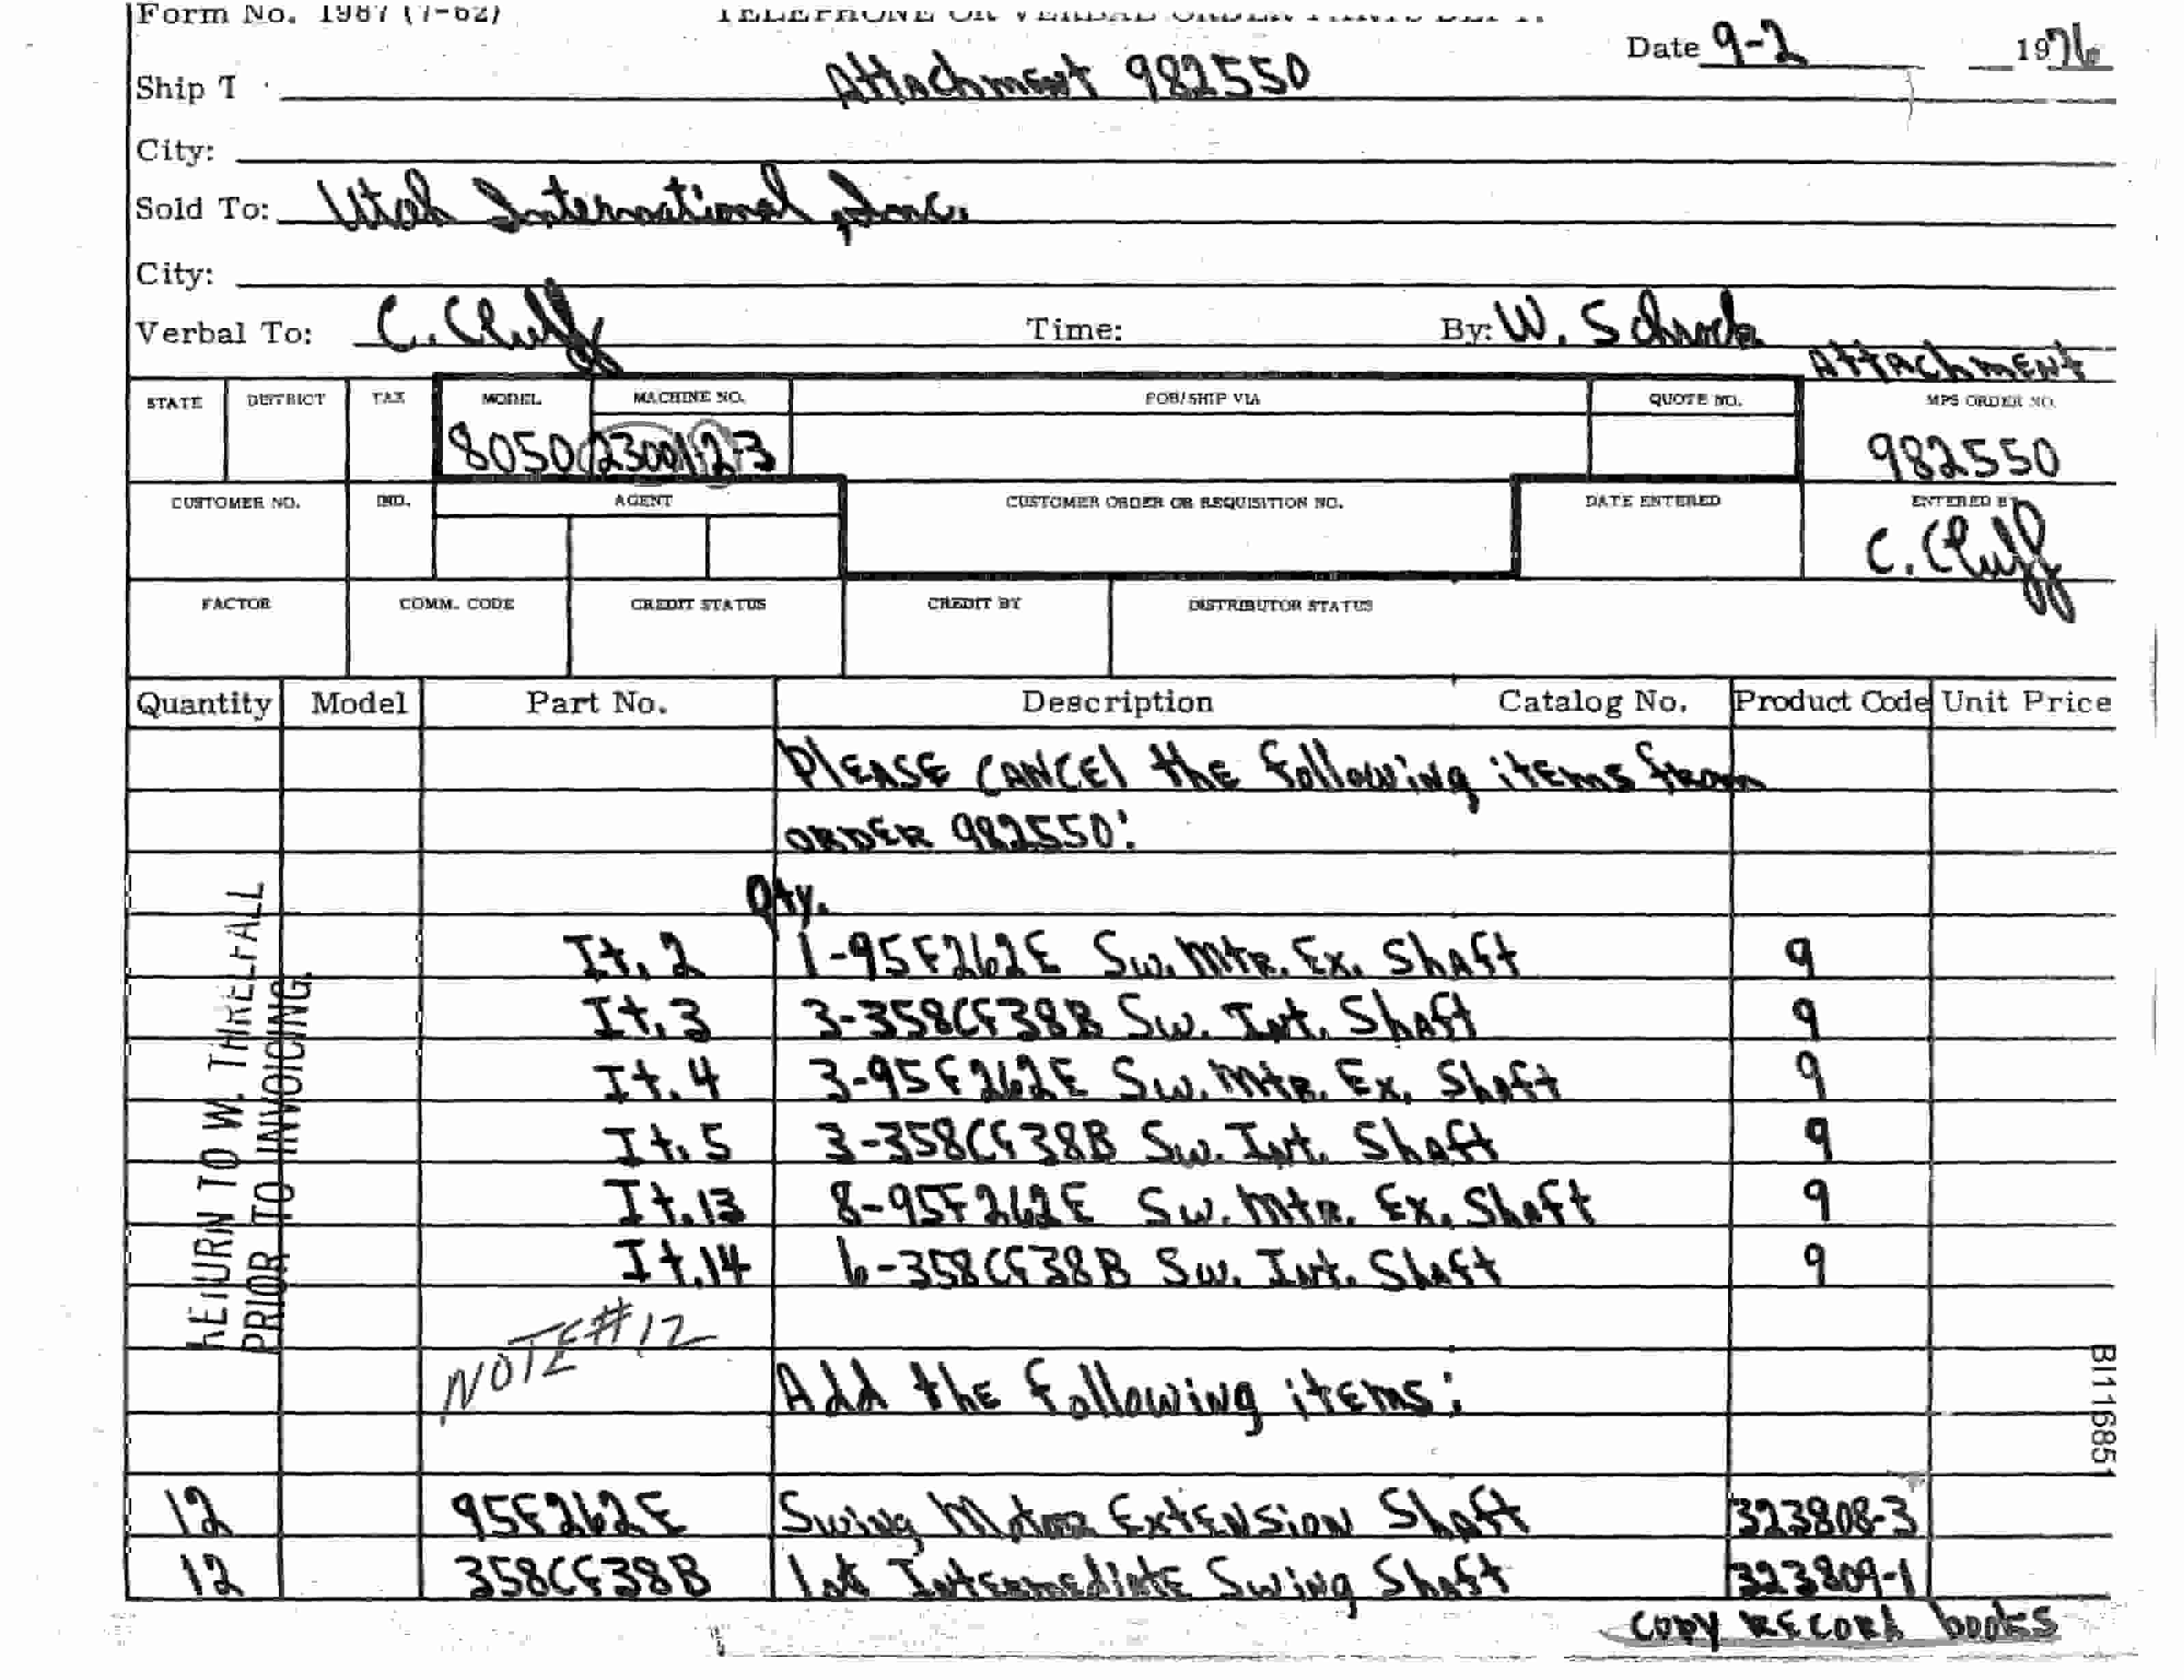 Form No. 1987 (7-62) TELEPHONE OR VERBAL ORDER PARTS DEPT.
Date 9-2 1976
Ship T Attachment 982550
City:
Sold To: Utah International, Inc.
City:
Verbal To: C. Cluff Time: By: W. Schrock
Attachment
STATE DISTRICT TAX MODEL MACHINE NO. FOB/SHIP VIA QUOTE NO. MPS ORDER NO.
8050 23001-2-3 982550
CUSTOMER NO. IND. AGENT CUSTOMER ORDER OR REQUISITION NO. DATE ENTERED ENTERED BY
C. Cluff
FACTOR COMM. CODE CREDIT STATUS CREDIT BY DISTRIBUTOR STATUS
Quantity Model Part No. Description Catalog No. Product Code Unit Price
PLEASE CANCEl the following itEms from
ORDER 982550:
Qty.
It. 2 1-95F262E Sw. Mtr. Ex. Shaft 9
It. 3 3-358CF38B Sw. Int. Shaft 9
It. 4 3-95F262E Sw. Mtr. Ex. Shaft 9
It. 5 3-358CF38B Sw. Int. Shaft 9
It. 13 8-95F262E Sw. Mtr. Ex. Shaft 9
It. 14 6-358CF38B Sw. Int. Shaft 9
NOTE #12
Add the following items:
12 95F262E Swing Motor Extension Shaft 323808-3
12 358CF38B 1st Intermediate Swing Shaft 323809-1
COPY RECORD books
RETURN TO W. THRELFALL
PRIOR TO INVOICING.
BI116851